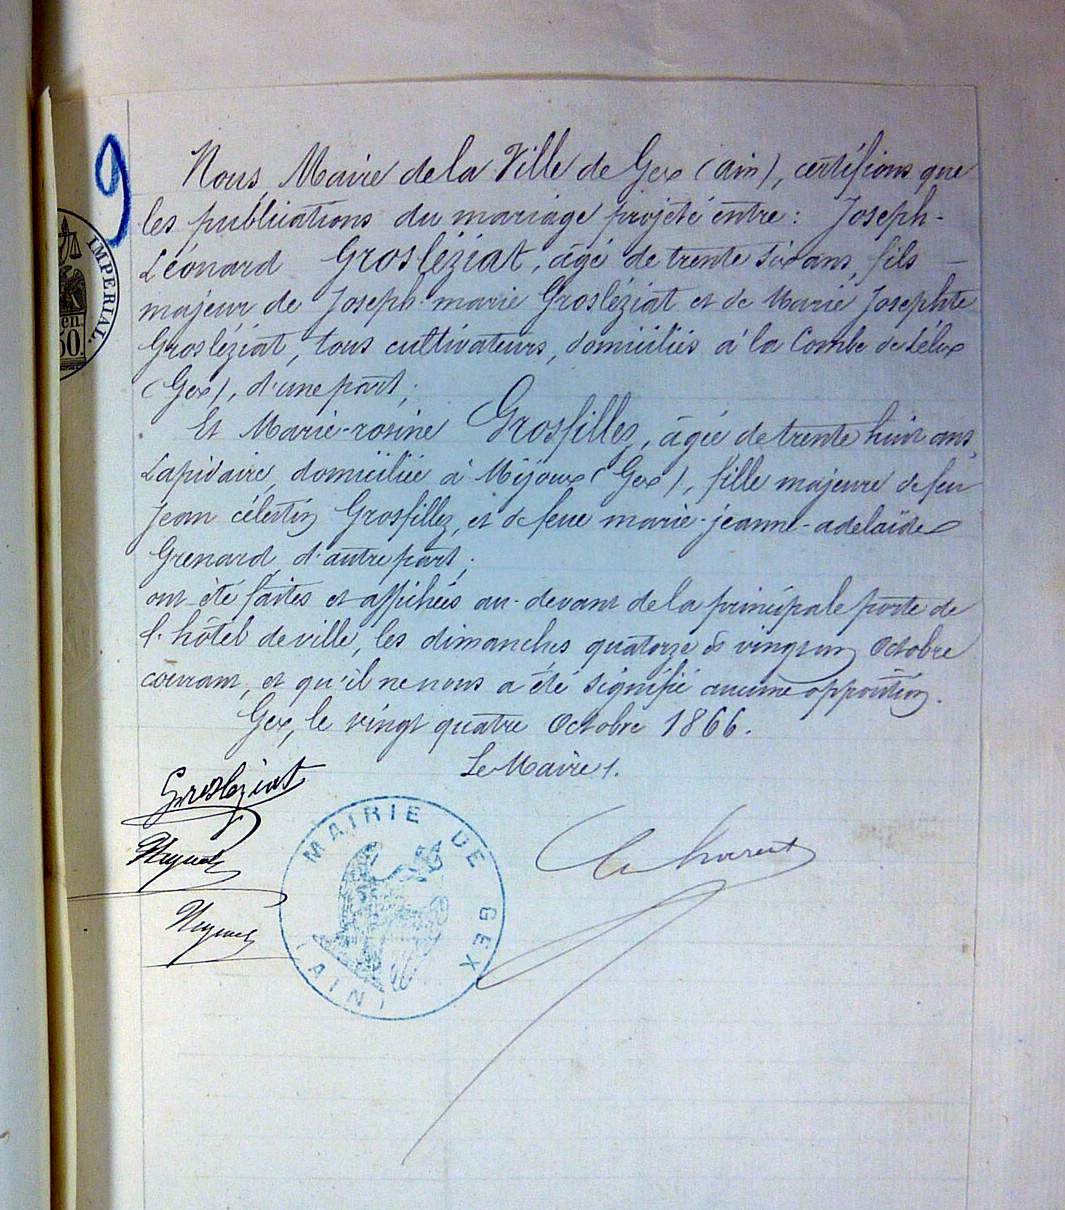 9
IMPERIAL.
en.
50.
Nous Maire de la Ville de Gex (ain), certifions que
les publications du mariage projeté entre : Joseph-
Léonard Grosléziat, âgé de trente six ans, fils
majeur de Joseph-marie Grosléziat et de Marie Josephte
Grosléziat, tous cultivateurs, domiciliés à la Combe de Lélex
(Gex), d'une part ;
Et Marie-rosine Grosfillez, âgée de trente huit ans,
Lapidaire, domiciliée à Mijoux (Gex), fille majeure de feu
Jean célestin Grosfillez, et de feue marie-jeanne-adelaïde
Grenard d'autre part ;
ont été faites et affichées au-devant de la principale porte de
l'hôtel de ville, les dimanches quatorze & vingt un Octobre
courant, et qu'il ne nous a été signifié aucune opposition.
Gex, le vingt quatre Octobre 1866.
Le Maire,
Grosléziat
MAIRIE DE GEX
(AIN)